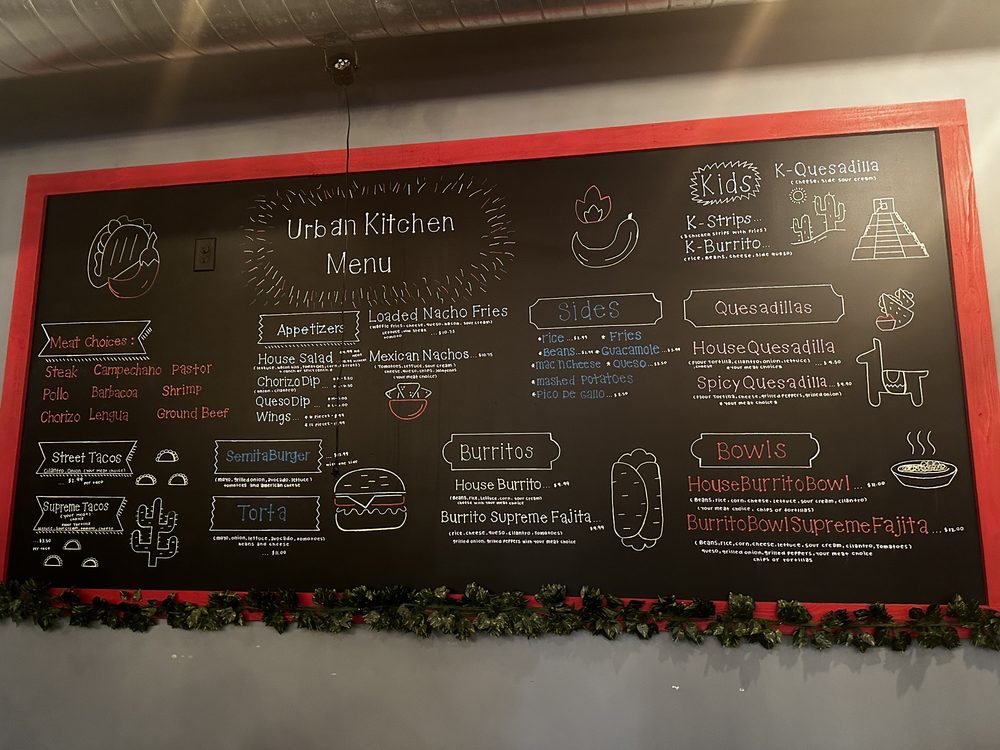 Urban Kitchen
Menu
Meat Choices:
Steak Campechano Pastor
Pollo Barbacoa Shrimp
Chorizo Lengua Ground Beef
Street Tacos
cilantro, onion (your meat choice)
... $2.99 per taco
Supreme Tacos
(your meat)
... $3.50
per taco
Appetizers
House Salad
Chorizo Dip
(onion, cilantro)
Queso Dip
Wings
Loaded Nacho Fries
(waffle fries, cheese, queso, bacon, sour cream)
... $10.75
Mexican Nachos... $10.75
(tomatoes, lettuce, sour cream,
cheese, queso, jalapenos)
(your meat choice)
Semita Burger
(mayo, grilled onion, avocado, lettuce)
tomatoes and american cheese
Torta
(mayo, onion, lettuce, avocado, tomatoes)
beans and cheese
... $11.00
Burritos
House Burrito... $9.99
(beans, rice, lettuce, corn, sour cream)
cheese with your meat choice
Burrito Supreme Fajita... $9.99
(rice, cheese, queso, cilantro, tomatoes)
grilled onion, grilled peppers with your meat choice
Sides
Rice Fries
Beans Guacamole
mac n cheese Queso
mashed potatoes
Pico De Gallo
Kids
K-Strips...
(3 chicken strips with fries)
K-Burrito...
(rice, beans, cheese, side queso)
K-Quesadilla
(cheese, side sour cream)
Quesadillas
House Quesadilla
(flour tortilla, cilantro, onion, lettuce)
& your meat choice
Spicy Quesadilla
& your meat choice
Bowls
House Burrito Bowl... $11.00
(Beans, rice, corn, cheese, lettuce, sour cream, cilantro)
(your meat choice, chips or tortillas)
Burrito Bowl Supreme Fajita... $12.00
(Beans, rice, corn, cheese, lettuce, sour cream, cilantro, tomatoes)
queso, grilled onion, grilled peppers, your meat choice
chips or tortillas